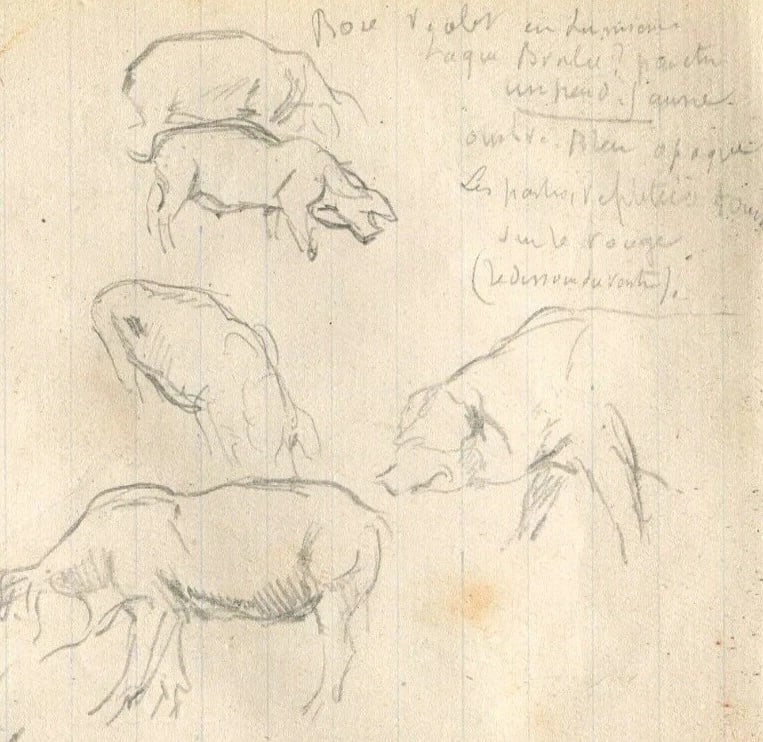 Rose violet en lumière
Laque Brulée ?
un peu d. jaune
ombre. Bleu opaque
Les parties
sur le rouge
(le dessous du ventre).